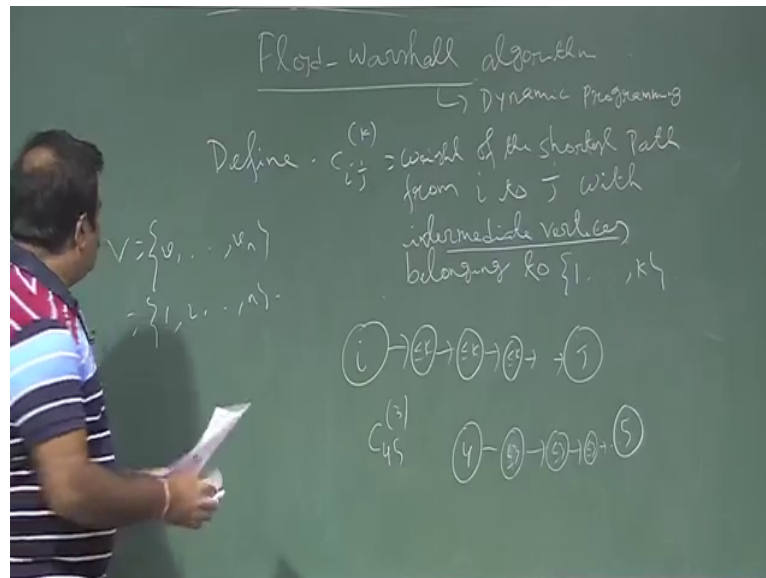 Floyd-Warshall algorithm
↳ Dynamic Programming
Define · C_{ij}^{(k)} = weight of the shortest Path
from i to J with
intermediate vertices
belonging to {1, . . , k}
V = {v_1, . . . , v_n}
= {1, 2, . . , n}.
i → ≤k → ≤k → ≤k → → J
C_{45}^{(3)}
4 → → → → 5